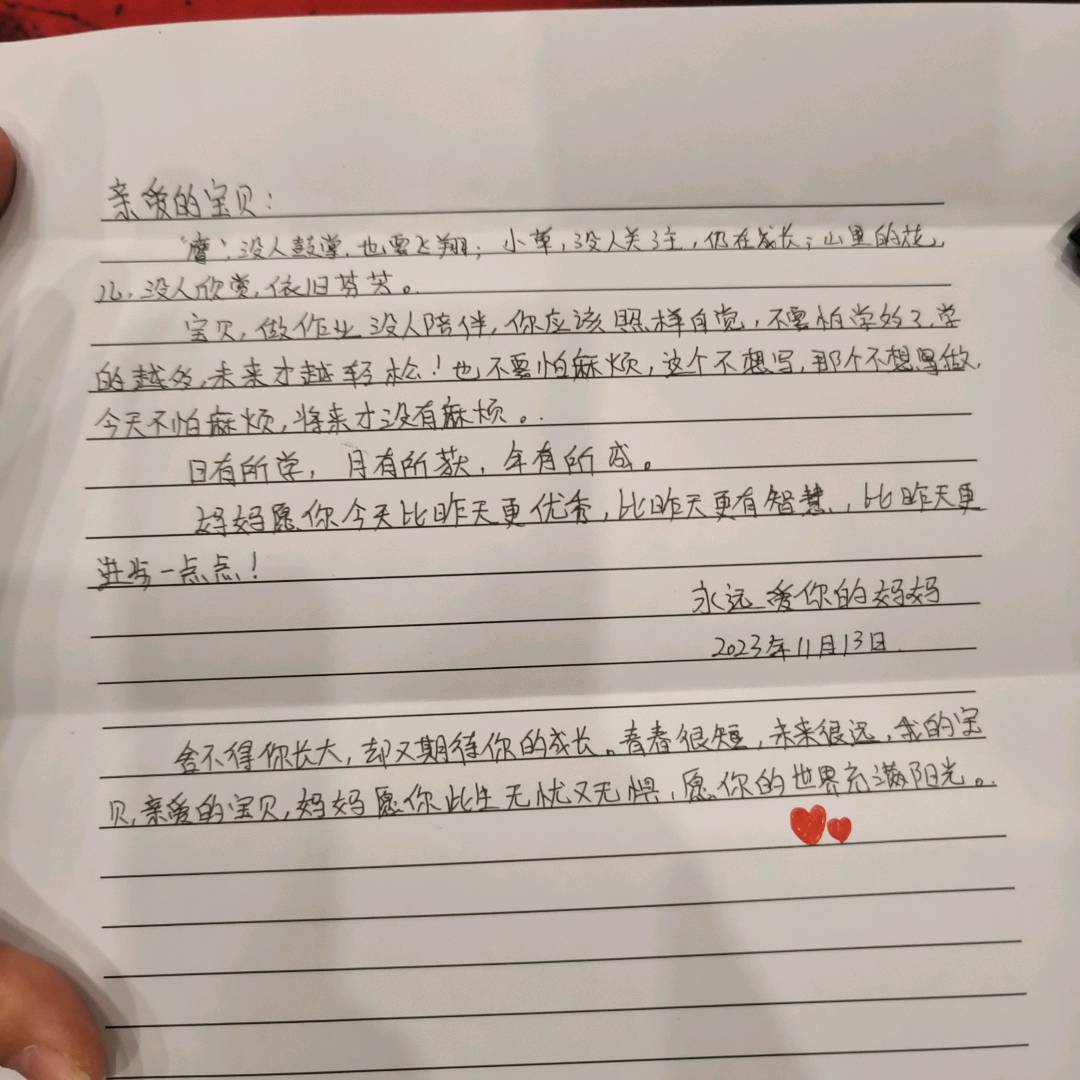 亲爱的宝贝：
鹰，没人鼓掌，也要飞翔；小草，没人关注，仍在成长；山里的花
儿，没人欣赏，依旧芬芳。
宝贝，做作业没人陪伴，你应该照样自觉，不要怕学多了，学
的越多，未来才越轻松！也不要怕麻烦，这个不想写，那个不想做，
今天不怕麻烦，将来才没有麻烦。
日有所学，月有所获，年有所成。
妈妈愿你今天比昨天更优秀，比昨天更有智慧，比昨天更
进步一点点！
永远爱你的妈妈
2023年11月13日
舍不得你长大，却又期待你的成长。青春很短，未来很远，我的宝
贝，亲爱的宝贝，妈妈愿你此生无忧又无惧，愿你的世界充满阳光。